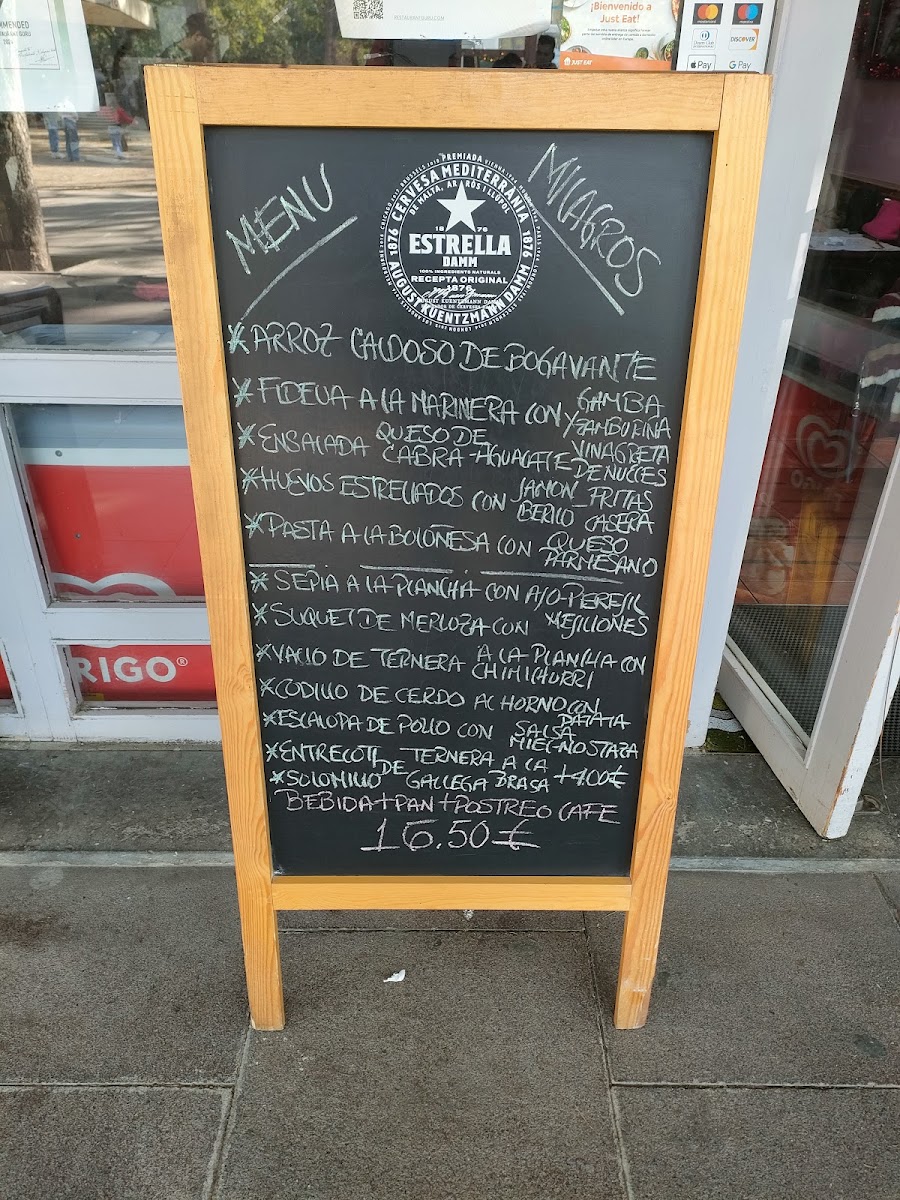 MMENDED
RESTAURANTGURU.COM
¡Bienvenido a
Just Eat!
JUST EAT
mastercard
maestro
Diners Club
DISCOVER
Apple Pay
G Pay
MENU
MILAGROS
PREMIADA
CERVESA MEDITERRÀNIA
DE MALTA, ARRÒS I LLÚPOL
1876
1876
1876
ESTRELLA
DAMM
100% INGREDIENTS NATURALS
RECEPTA ORIGINAL
1876
AUGUST KUENTZMANN DAMM
AUGUST KUENTZMANN DAMM
*ARROZ CALDOSO DE BOGAVANTE
*FIDEUA A LA MARINERA CON GAMBA
Y ZAMBURIÑA
*ENSALADA QUESO DE
CABRA-AGUACATE VINAGRETA
DE NUECES
*HUEVOS ESTRELLADOS CON JAMON
IBERICO FRITAS
CASERA
*PASTA A LA BOLOÑESA CON QUESO
PARMESANO
*SEPIA A LA PLANCHA CON AJO-PEREJIL
*SUQUET DE MERLUZA CON MEJILLONES
*VACIO DE TERNERA A LA PLANCHA CON
CHIMICHURRI
*CODILLO DE CERDO AL HORNO CON
PATATA
*ESCALOPA DE POLLO CON SALSA
MIEL-MOSTAZA
*ENTRECOTE
*SOLOMILLO DE TERNERA A LA
GALLEGA BRASA +4.00€
BEBIDA+PAN+POSTRE O CAFE
16.50€
RIGO®